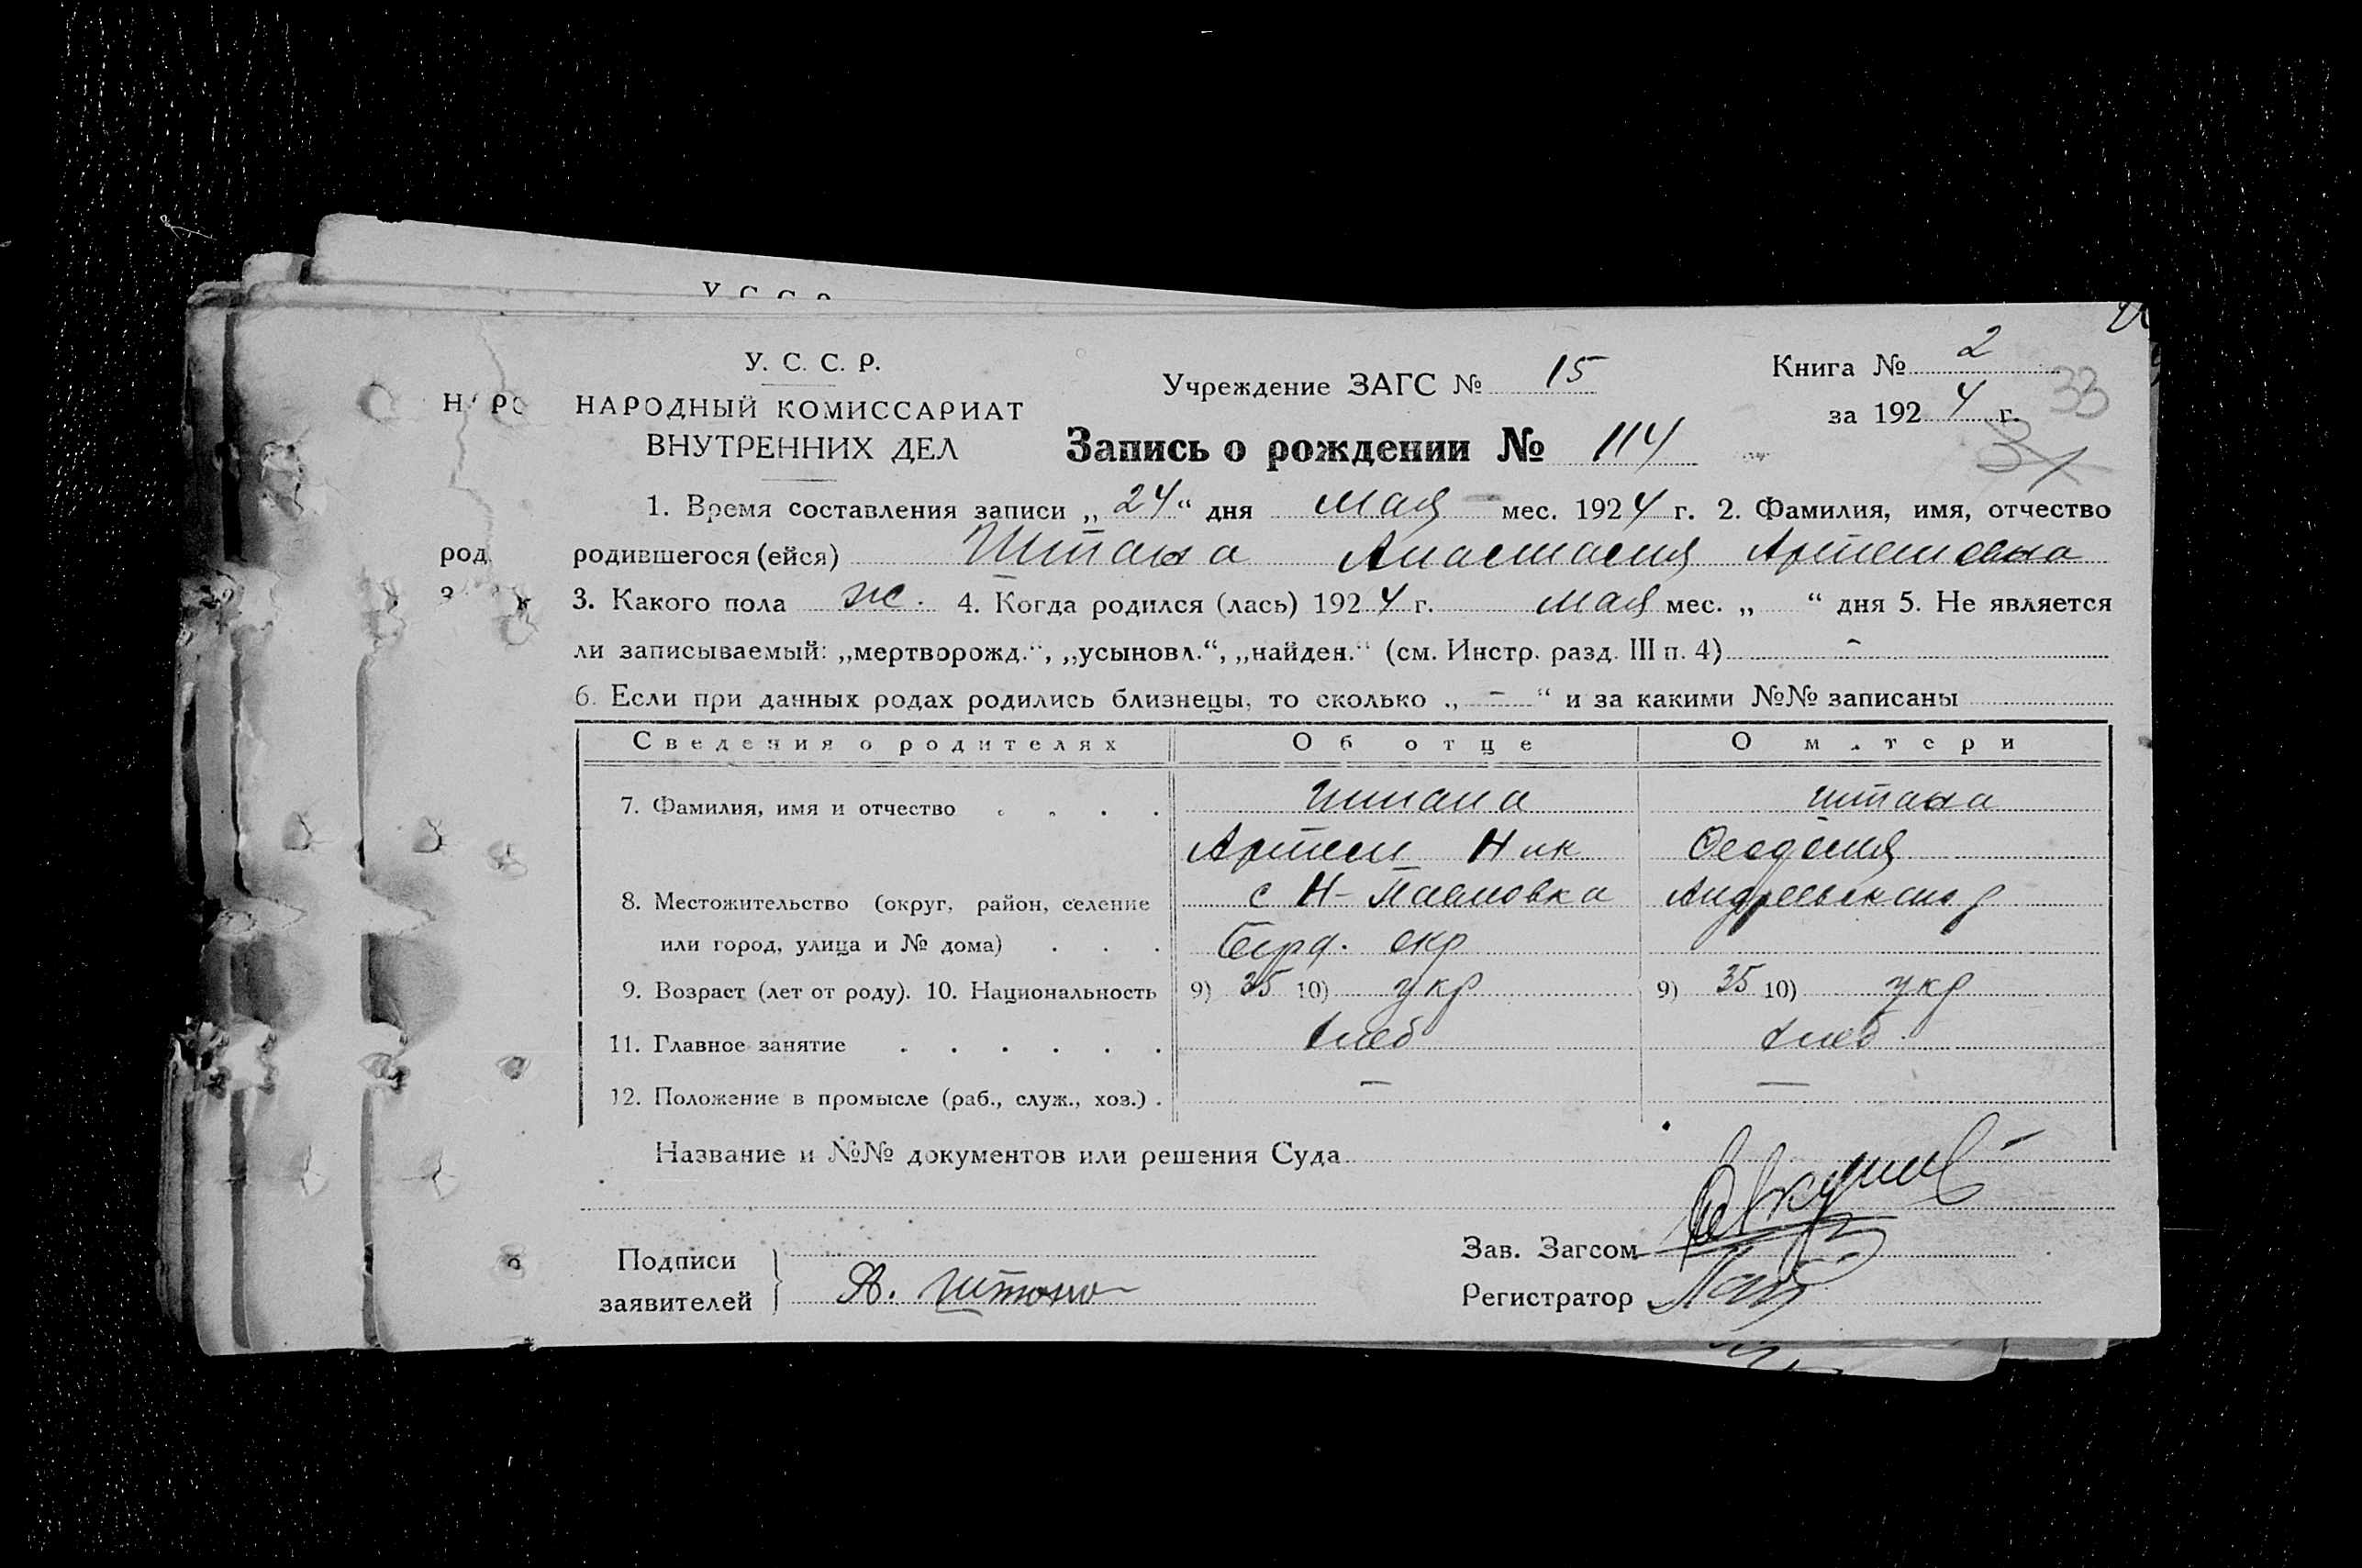 У. С. С. Р.
НАРОДНЫЙ КОМИССАРИАТ
ВНУТРЕННИХ ДЕЛ
Учреждение ЗАГС № 15
Книга № 2
за 1924 г.
33
Запись о рождении № 114
1. Время составления записи „24“ дня мая мес. 1924 г. 2. Фамилия, имя, отчество
родившегося (ейся) Штана Анастасия Артемовна
3. Какого пола ж. 4. Когда родился (лась) 1924 г. мая мес. „ “ дня 5. Не является
ли записываемый: „мертворожд.“, „усыновл.“, „найден.“ (см. Инстр. разд. III п. 4) -
6. Если при данных родах родились близнецы, то сколько „ - “ и за какими №№ записаны
Сведения о родителях Об отце О матери
7. Фамилия, имя и отчество . . . . Штана Штана
Артем Ник
8. Местожительство (округ, район, селение с Н-Павловка
или город, улица и № дома) . . . окр
9. Возраст (лет от роду). 10. Национальность 9) 35 10) укр 9) 35 10) укр
11. Главное занятие . . . . . . хлеб хлеб
12. Положение в промысле (раб., служ., хоз.) . — —
Название и №№ документов или решения Суда
Подписи
заявителей
Зав. Загсом
Регистратор